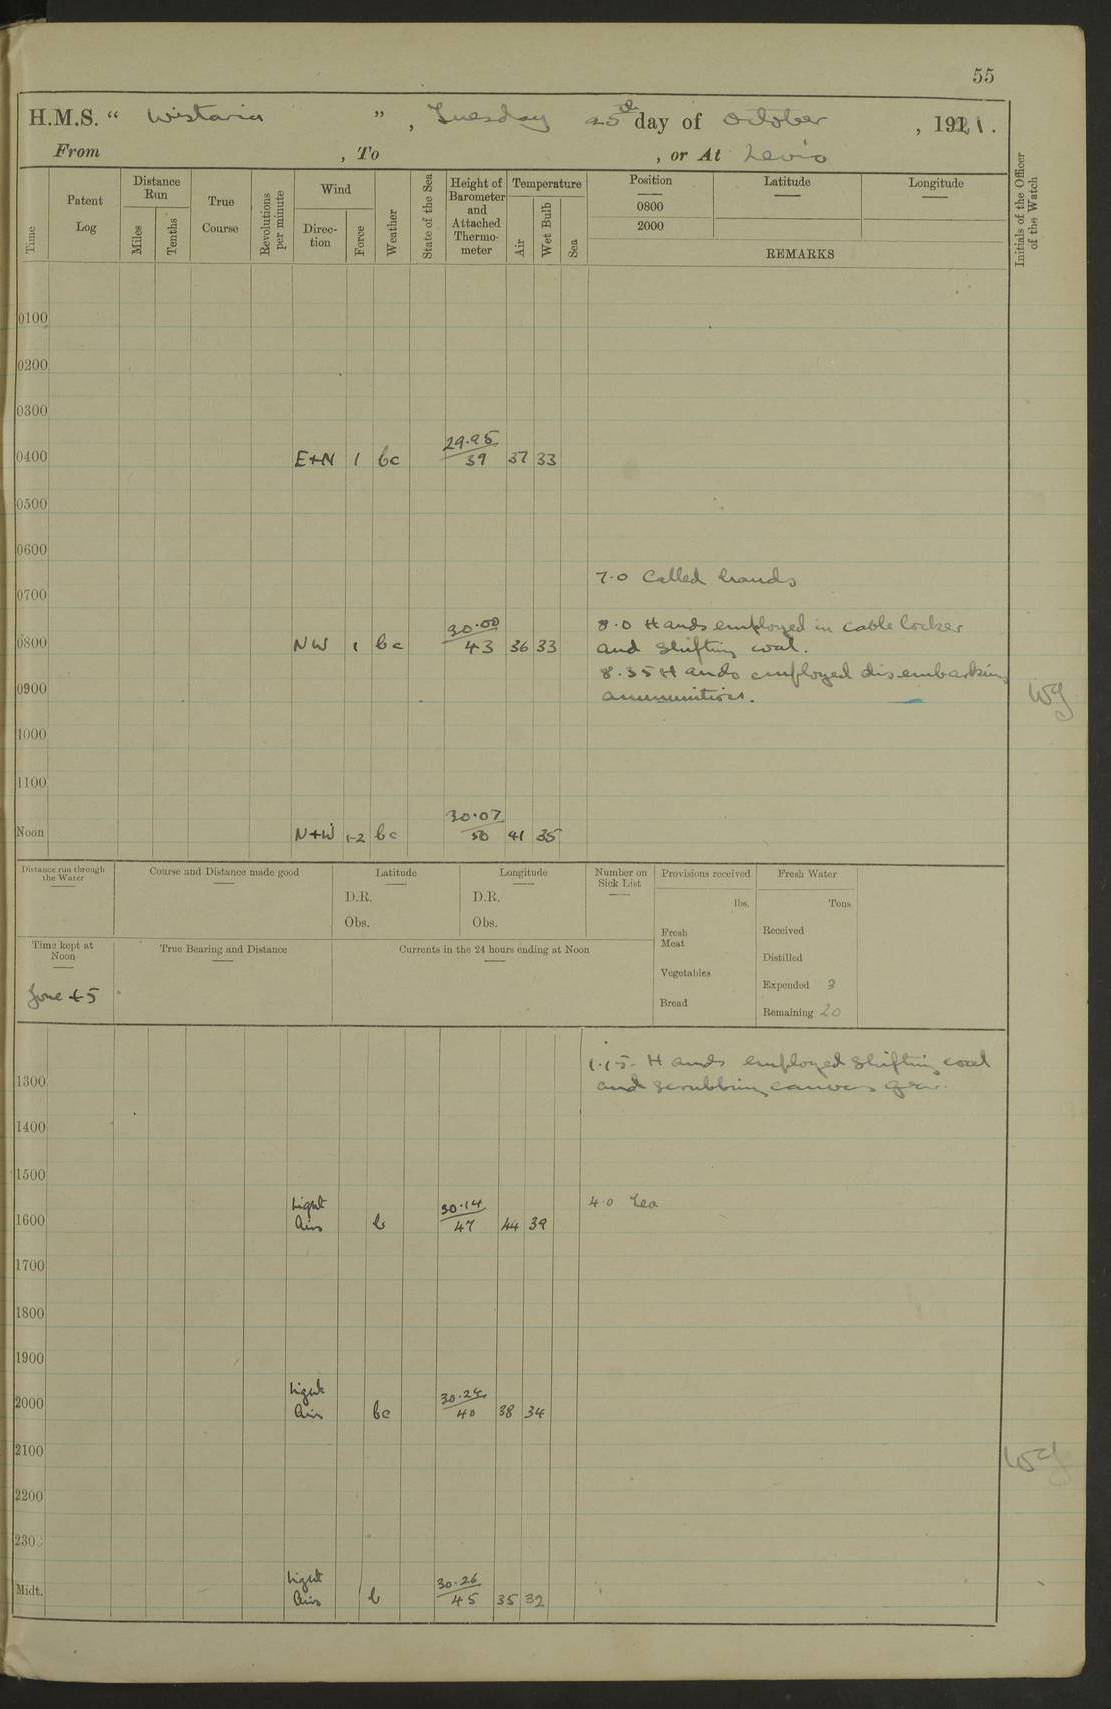 55
H.M.S. “ Wistaria ”, Tuesday 25th day of October, 1921.
From , To , or At Levis
Time
Patent Log
Distance Run
Miles
Tenths
True Course
Revolutions per minute
Wind
Direction
Force
Weather
State of the Sea
Height of Barometer and Attached Thermometer
Temperature
Air
Wet Bulb
Sea
Position
0800
2000
Latitude
Longitude
REMARKS
Initials of the Officer of the Watch
0100
0200
0300
0400 E+N 1 bc 29.95/39 37 33
0500
0600
7.0 Called hands
0700
8.0 Hands employed in cable locker
0800 NW 1 bc 30.00/43 36 33 and shifting coal.
8.35 Hands employed disembarking
0900 ammunition. WG
1000
1100
Noon N+W 1-2 bc 30.07/50 41 35
Distance run through the Water
Course and Distance made good
Latitude
D.R.
Obs.
Longitude
D.R.
Obs.
Number on Sick List
Provisions received
lbs.
Fresh Meat
Vegetables
Bread
Fresh Water
Tons
Received
Distilled
Expended 3
Remaining 20
Time kept at Noon
Zone +5
True Bearing and Distance
Currents in the 24 hours ending at Noon
1.15. Hands employed shifting coal
1300 and scrubbing canvas gear.
1400
1500
4.0 Tea
1600 Light Airs b 30.14/47 44 39
1700
1800
1900
2000 Light Airs bc 30.24/40 38 34
2100 WG
2200
2300
Midt. Light Airs b 30.26/45 35 32